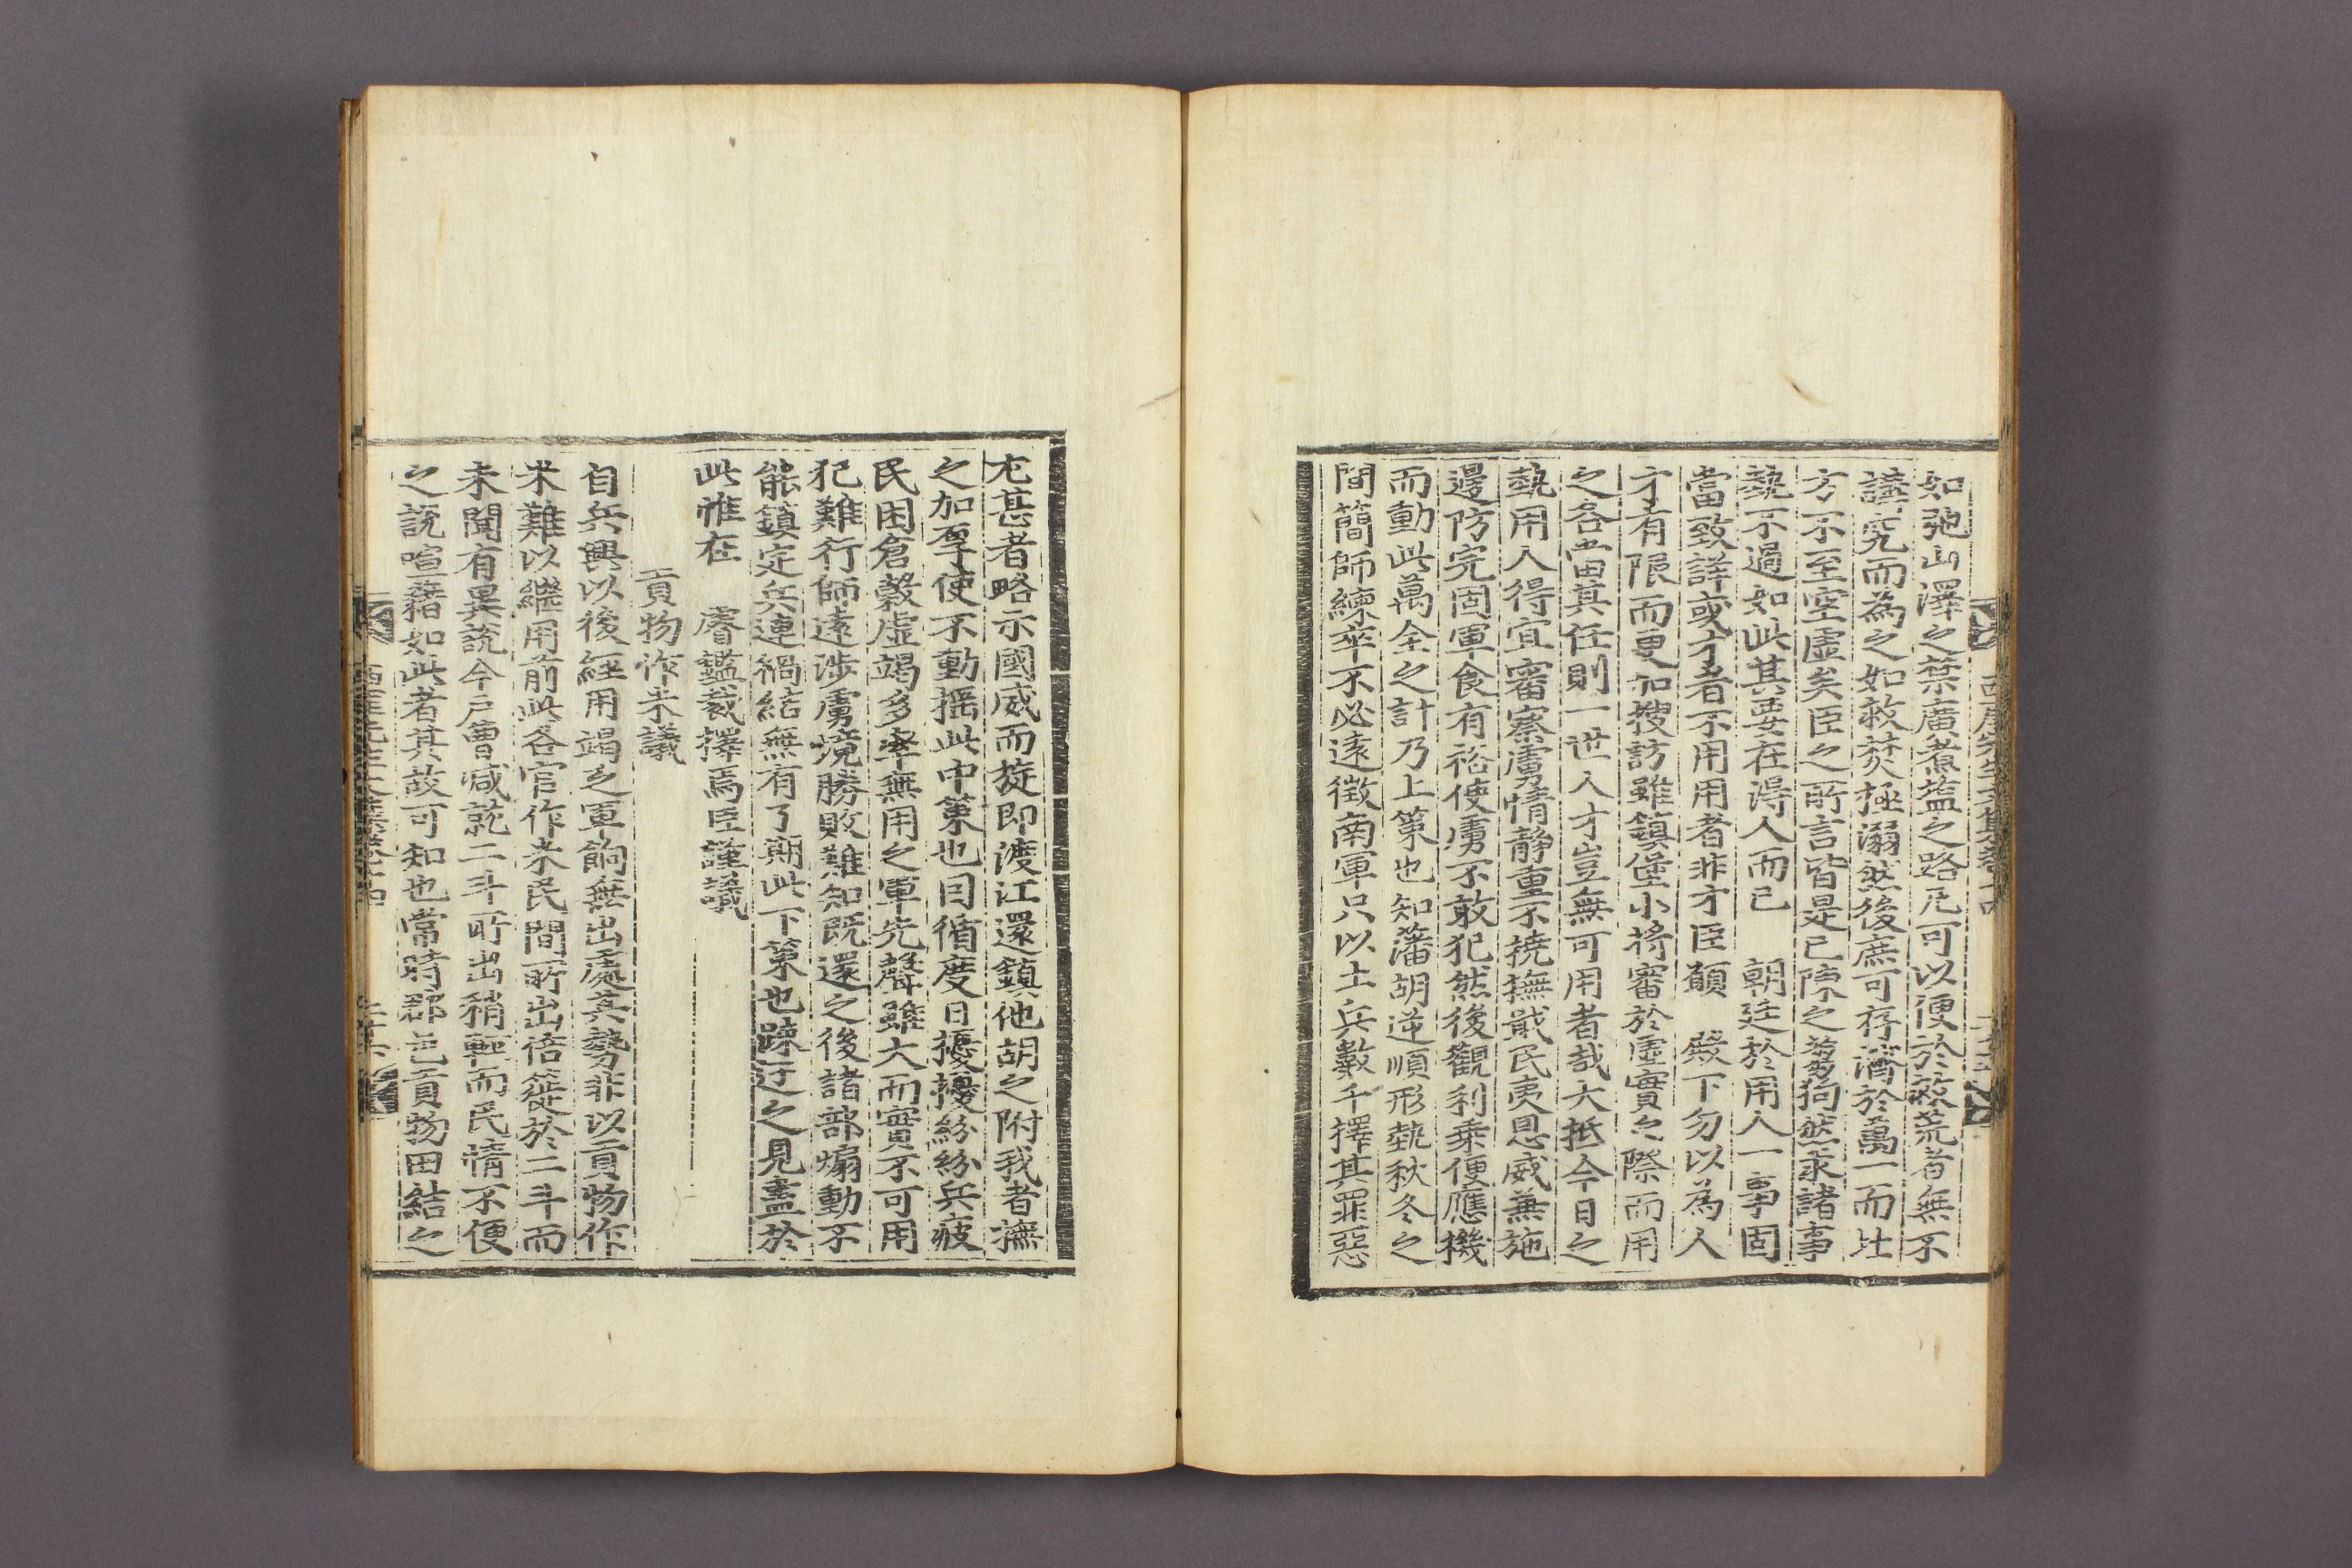 如弛山澤之禁廣煮塩之路凡可以便於救荒者無不
講究而為之如救焚拯溺然後庶可存濟於萬一而北
方不至空虛矣臣之所言皆是已陳之芻狗然求諸事
埶不過如此其要在得人而已　朝廷於用人一事固
當致詳或才者不用用者非才臣願　殿下勿以為人
才有限而更加搜訪雖鎮堡小將審於虛實之際而用
之各當其任則一世人才豈無可用者哉大抵今日之
埶用人得宜審察虜情静重不撓撫戢民夷恩威兼施
邊防完固軍食有裕使虜不敢犯然後觀利乘便應機
而動此萬全之計乃上策也知藩胡逆順形埶秋冬之
間簡師練卒不必遠徵南軍只以土兵數千擇其罪惡
尤甚者略示國威而旋即渡江還鎮他胡之附我者撫
之加厚使不動搖此中策也因循度日擾擾紛紛兵疲
民困倉穀虛竭多率無用之軍先聲雖大而實不可用
犯難行師遠涉虜境勝敗難知既還之後諸部煽動不
能鎮定兵連禍結無有了期此下策也踈迂之見盡於
此惟在　睿鑑裁擇焉臣謹議
貢物作米議
自兵興以後經用竭乏軍餉無出處其勢非以貢物作
米難以繼用前此各官作米民間所出倍蓰於二斗而
未聞有異說今戶曹减就二斗所出稍輕而民情不便
之說喧藉如此者其故可知也當時郡邑貢物田結之